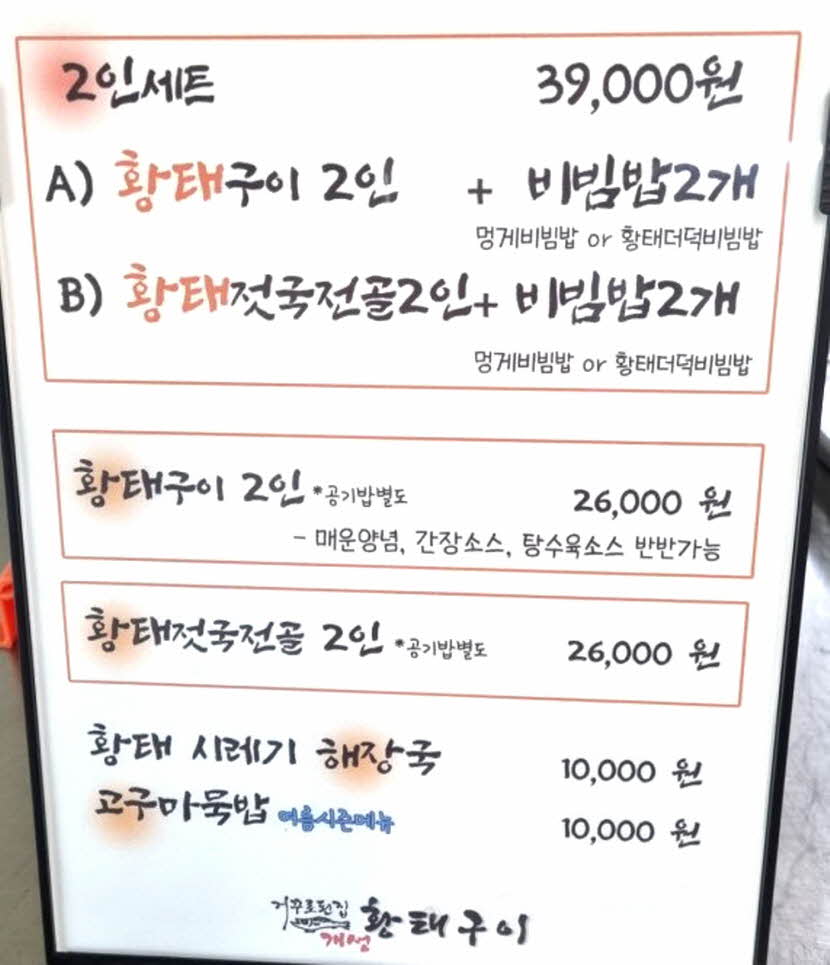 2인세트 39,000원
A) 황태구이 2인 + 비빔밥2개
멍게비빔밥 or 황태더덕비빔밥
B) 황태젓국전골2인+ 비빔밥2개
멍게비빔밥 or 황태더덕비빔밥
황태구이 2인 *공기밥별도 26,000 원
- 매운양념, 간장소스, 탕수육소스 반반가능
황태젓국전골 2인 *공기밥별도 26,000 원
황태 시레기 해장국 10,000 원
고구마묵밥 여름시즌메뉴 10,000 원
거꾸로된집
황태구이